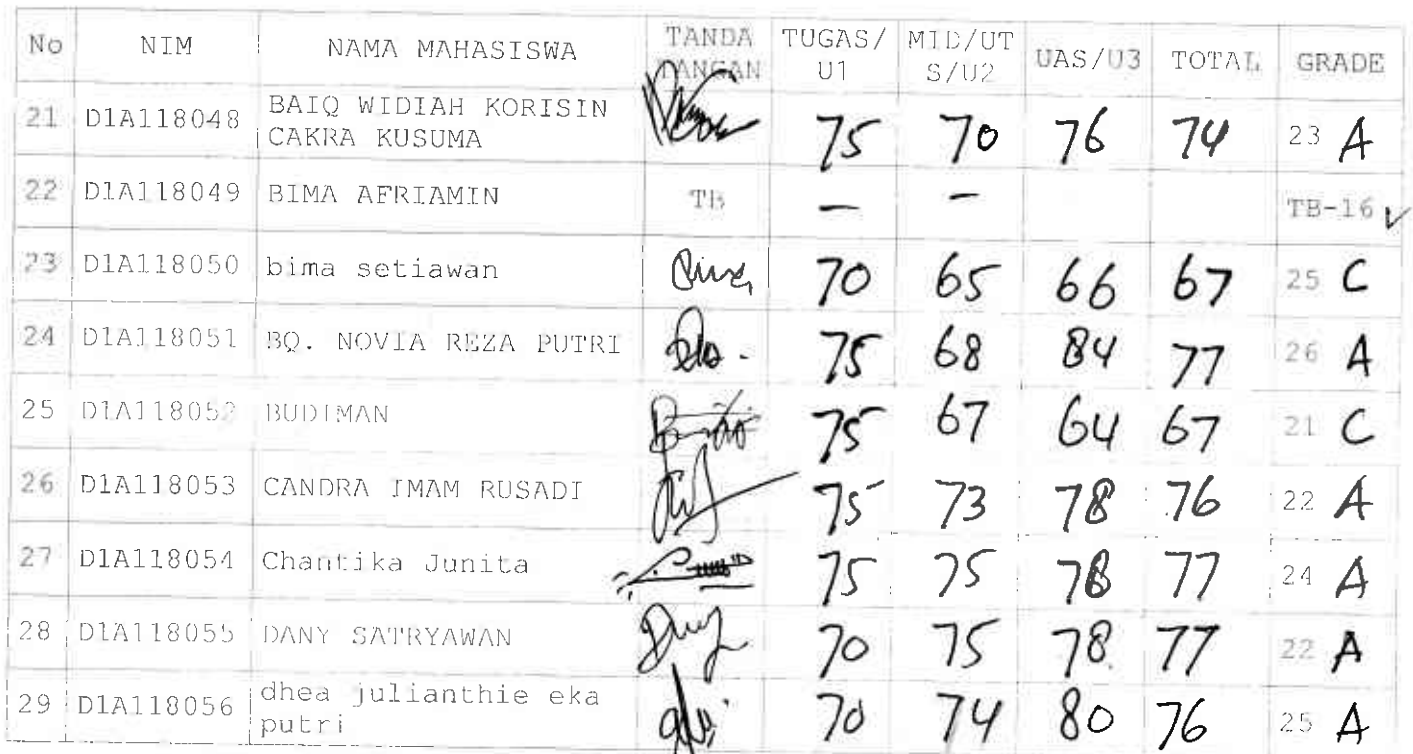 No NIM NAMA MAHASISWA TANDA TANGAN TUGAS/U1 MID/UTS/U2 UAS/U3 TOTAL GRADE
21 D1A118048 BAIQ WIDIAH KORISIN CAKRA KUSUMA 75 70 76 74 23 A
22 D1A118049 BIMA AFRIAMIN TB - - TB-16
23 D1A118050 bima setiawan 70 65 66 67 25 C
24 D1A118051 BQ. NOVIA REZA PUTRI 75 68 84 77 26 A
25 D1A118052 BUDIMAN 75 67 64 67 21 C
26 D1A118053 CANDRA IMAM RUSADI 75 73 78 76 22 A
27 D1A118054 Chantika Junita 75 75 78 77 24 A
28 D1A118055 DANY SATRYAWAN 70 75 78 77 22 A
29 D1A118056 dhea julianthie eka putri 70 74 80 76 25 A